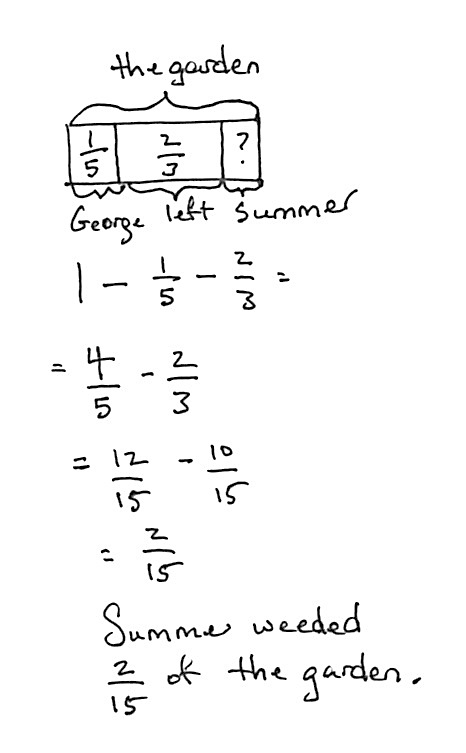 the garden
1/5 2/3 ?
George left Summer
1 - 1/5 - 2/3 =
= 4/5 - 2/3
= 12/15 - 10/15
= 2/15
Summer weeded
2/15 of the garden.